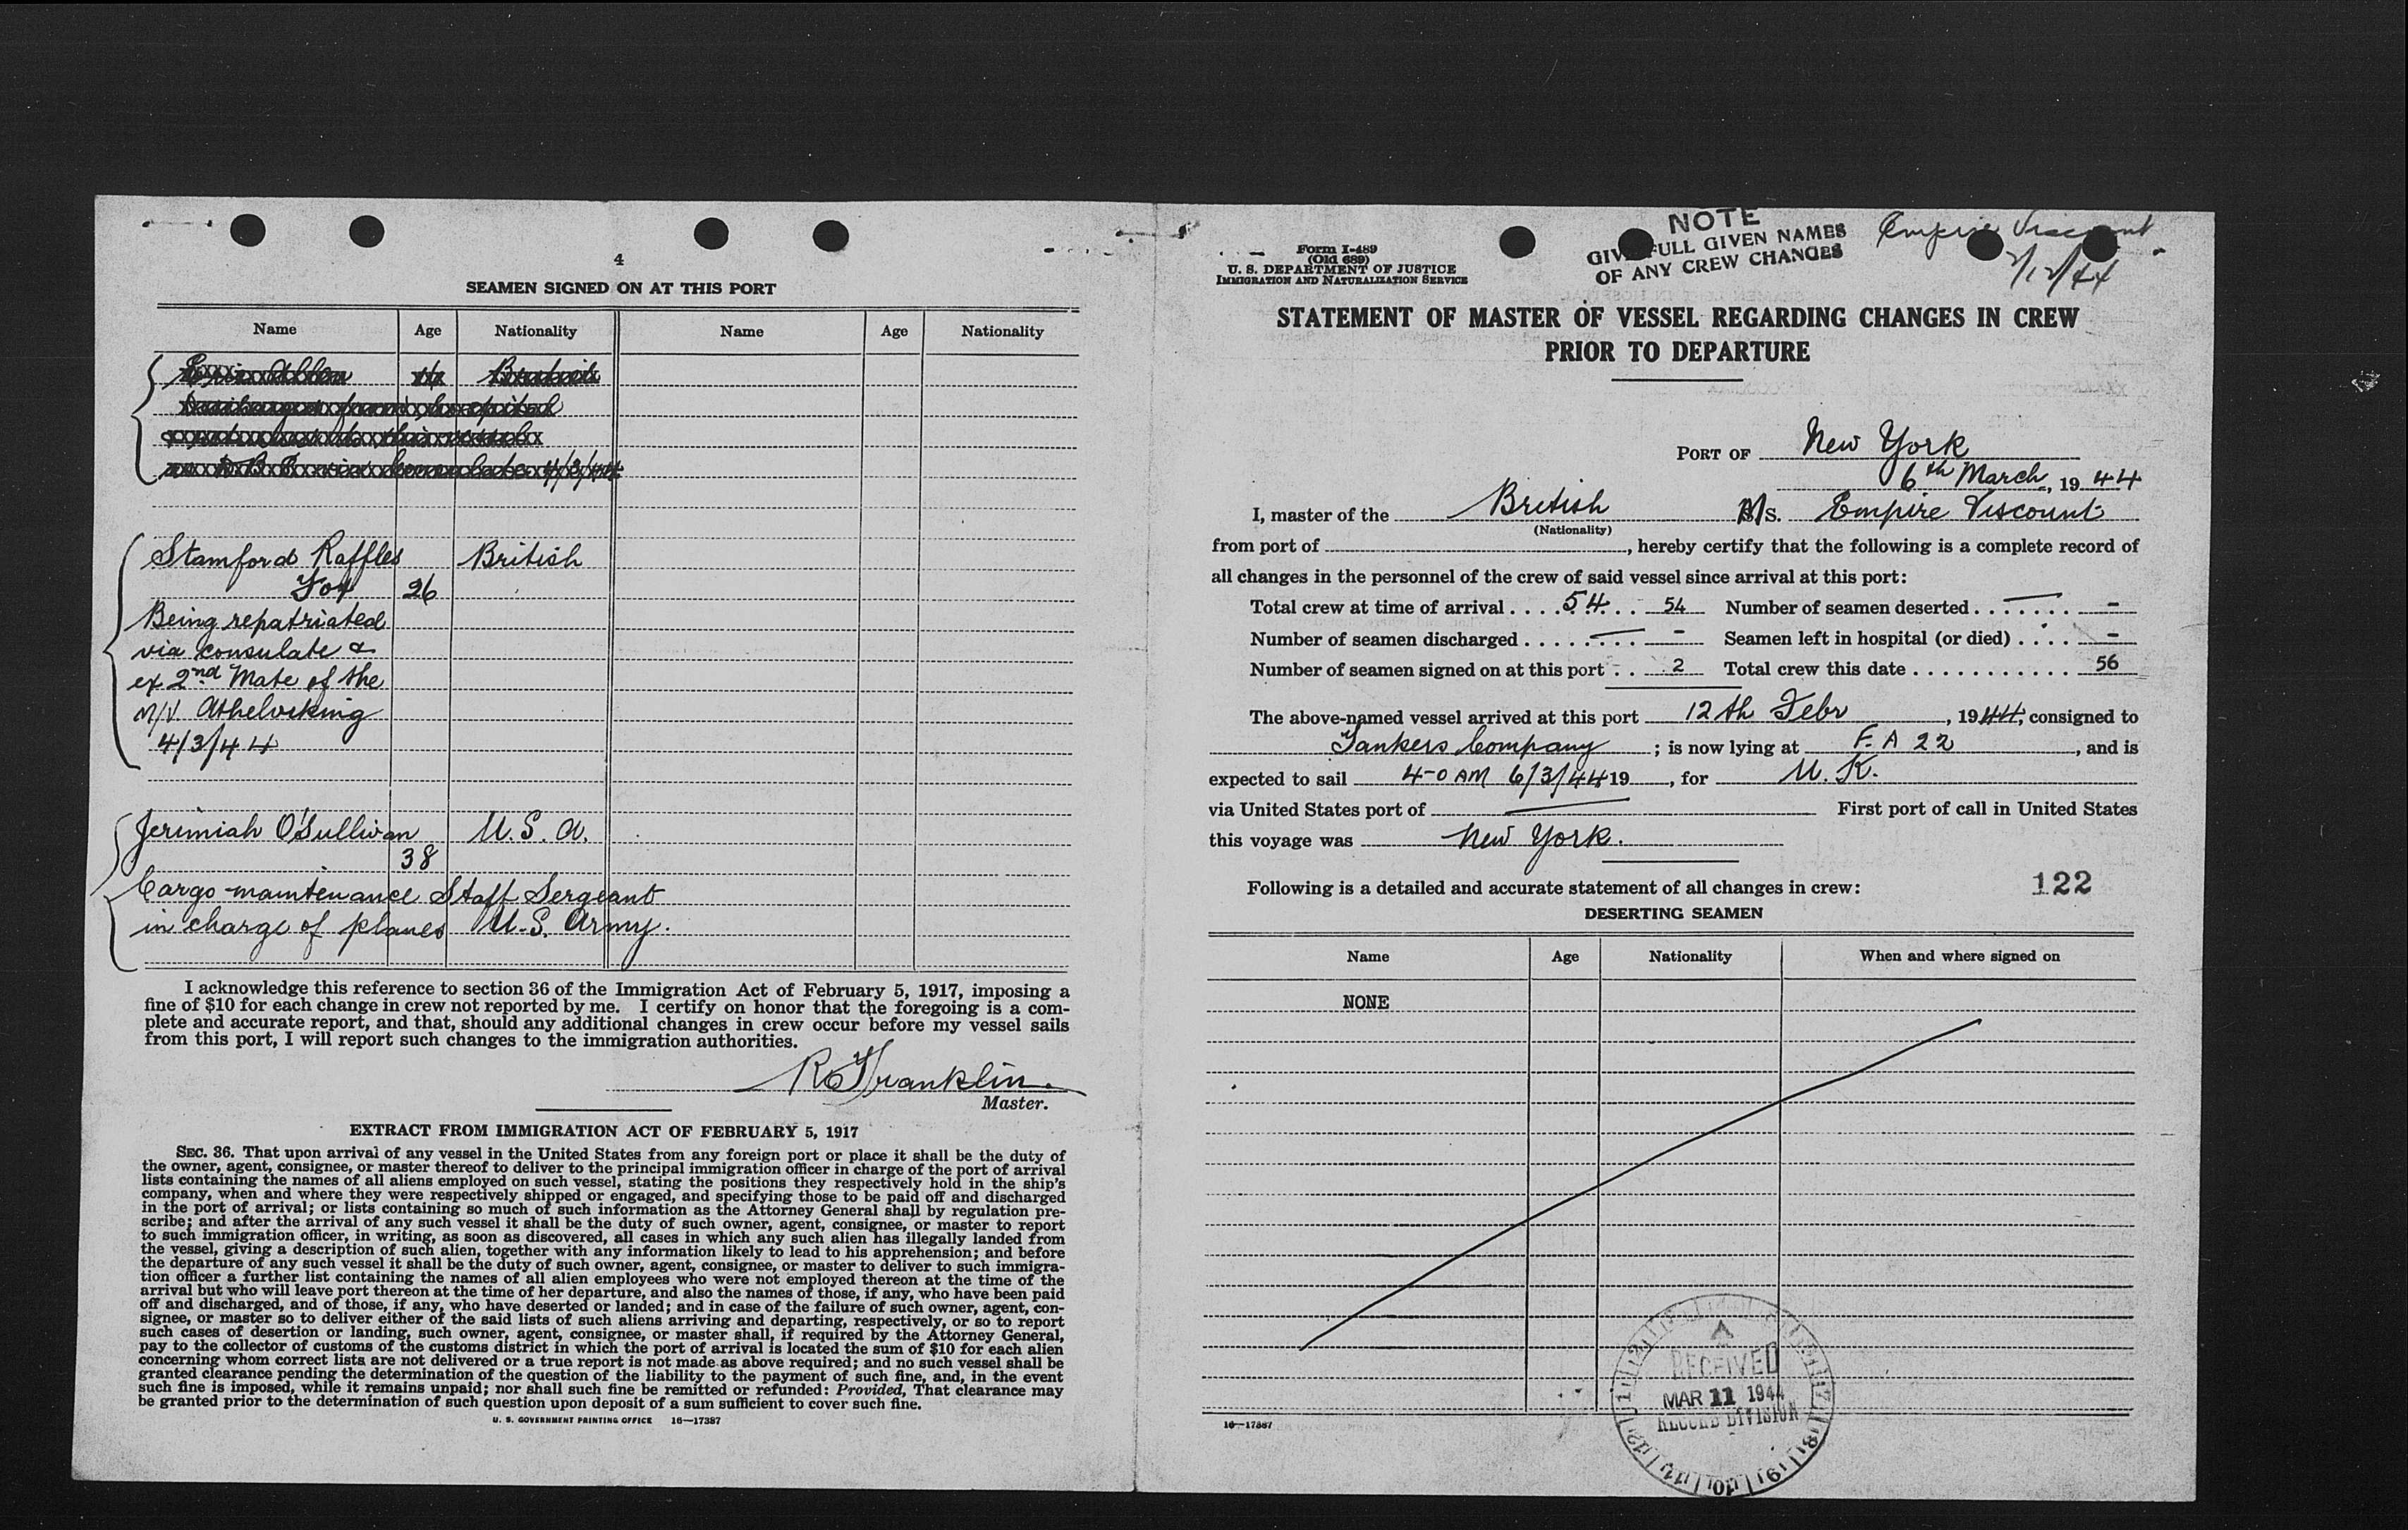 4
SEAMEN SIGNED ON AT THIS PORT
Name Age Nationality Name Age Nationality
Stamford Raffles British
Fox 26
Being repatriated
via consulate &
ex 2nd Mate of the
M/V. Athelviking
4/3/44
Jerimiah O'Sullivan U.S.A.
38
Cargo maintenance Staff Sergeant
in charge of planes U.S. Army.
I acknowledge this reference to section 36 of the Immigration Act of February 5, 1917, imposing a
fine of $10 for each change in crew not reported by me. I certify on honor that the foregoing is a com-
plete and accurate report, and that, should any additional changes in crew occur before my vessel sails
from this port, I will report such changes to the immigration authorities.
Franklin
Master.
EXTRACT FROM IMMIGRATION ACT OF FEBRUARY 5, 1917
SEC. 36. That upon arrival of any vessel in the United States from any foreign port or place it shall be the duty of
the owner, agent, consignee, or master thereof to deliver to the principal immigration officer in charge of the port of arrival
lists containing the names of all aliens employed on such vessel, stating the positions they respectively hold in the ship's
company, when and where they were respectively shipped or engaged, and specifying those to be paid off and discharged
in the port of arrival; or lists containing so much of such information as the Attorney General shall by regulation pre-
scribe; and after the arrival of any such vessel it shall be the duty of such owner, agent, consignee, or master to report
to such immigration officer, in writing, as soon as discovered, all cases in which any such alien has illegally landed from
the vessel, giving a description of such alien, together with any information likely to lead to his apprehension; and before
the departure of any such vessel it shall be the duty of such owner, agent, consignee, or master to deliver to such immigra-
tion officer a further list containing the names of all alien employees who were not employed thereon at the time of the
arrival but who will leave port thereon at the time of her departure, and also the names of those, if any, who have been paid
off and discharged, and of those, if any, who have deserted or landed; and in case of the failure of such owner, agent, con-
signee, or master so to deliver either of the said lists of such aliens arriving and departing, respectively, or so to report
such cases of desertion or landing, such owner, agent, consignee, or master shall, if required by the Attorney General,
pay to the collector of customs of the customs district in which the port of arrival is located the sum of $10 for each alien
concerning whom correct lists are not delivered or a true report is not made as above required; and no such vessel shall be
granted clearance pending the determination of the question of the liability to the payment of such fine, and, in the event
such fine is imposed, while it remains unpaid; nor shall such fine be remitted or refunded: Provided, That clearance may
be granted prior to the determination of such question upon deposit of a sum sufficient to cover such fine.
U. S. GOVERNMENT PRINTING OFFICE 16—17387
Form I-489
(Old 689)
U. S. DEPARTMENT OF JUSTICE
IMMIGRATION AND NATURALIZATION SERVICE
NOTE
GIVE FULL GIVEN NAMES
OF ANY CREW CHANGES
Empire Viscount
2/12/44
STATEMENT OF MASTER OF VESSEL REGARDING CHANGES IN CREW
PRIOR TO DEPARTURE
PORT OF New York
6th March, 1944
I, master of the British M/S. Empire Viscount
(Nationality)
from port of , hereby certify that the following is a complete record of
all changes in the personnel of the crew of said vessel since arrival at this port:
Total crew at time of arrival .... 54 .. 54 Number of seamen deserted ....... -
Number of seamen discharged ....... - Seamen left in hospital (or died) .... -
Number of seamen signed on at this port .. 2 Total crew this date ........... 56
The above-named vessel arrived at this port 12th Febr , 1944, consigned to
Tankers Company ; is now lying at F. A 22 , and is
expected to sail 4-0 AM 6/3/44 19 , for U. K.
via United States port of First port of call in United States
this voyage was New York.
Following is a detailed and accurate statement of all changes in crew: 122
DESERTING SEAMEN
Name Age Nationality When and where signed on
NONE
A
RECEIVED
MAR 11 1944
RECORD DIVISION
16—17387